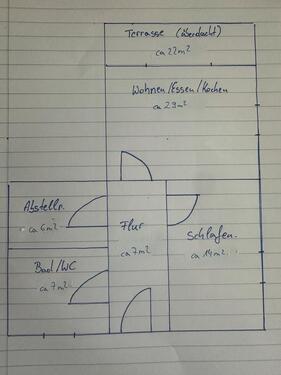 Terrasse (überdacht)
ca 22m²
Wohnen/Essen/Kochen
ca 29m²
Abstellr.
ca 6m²
Flur
ca 7m²
Schlafen
ca 14m²
Bad/WC
ca 7m²